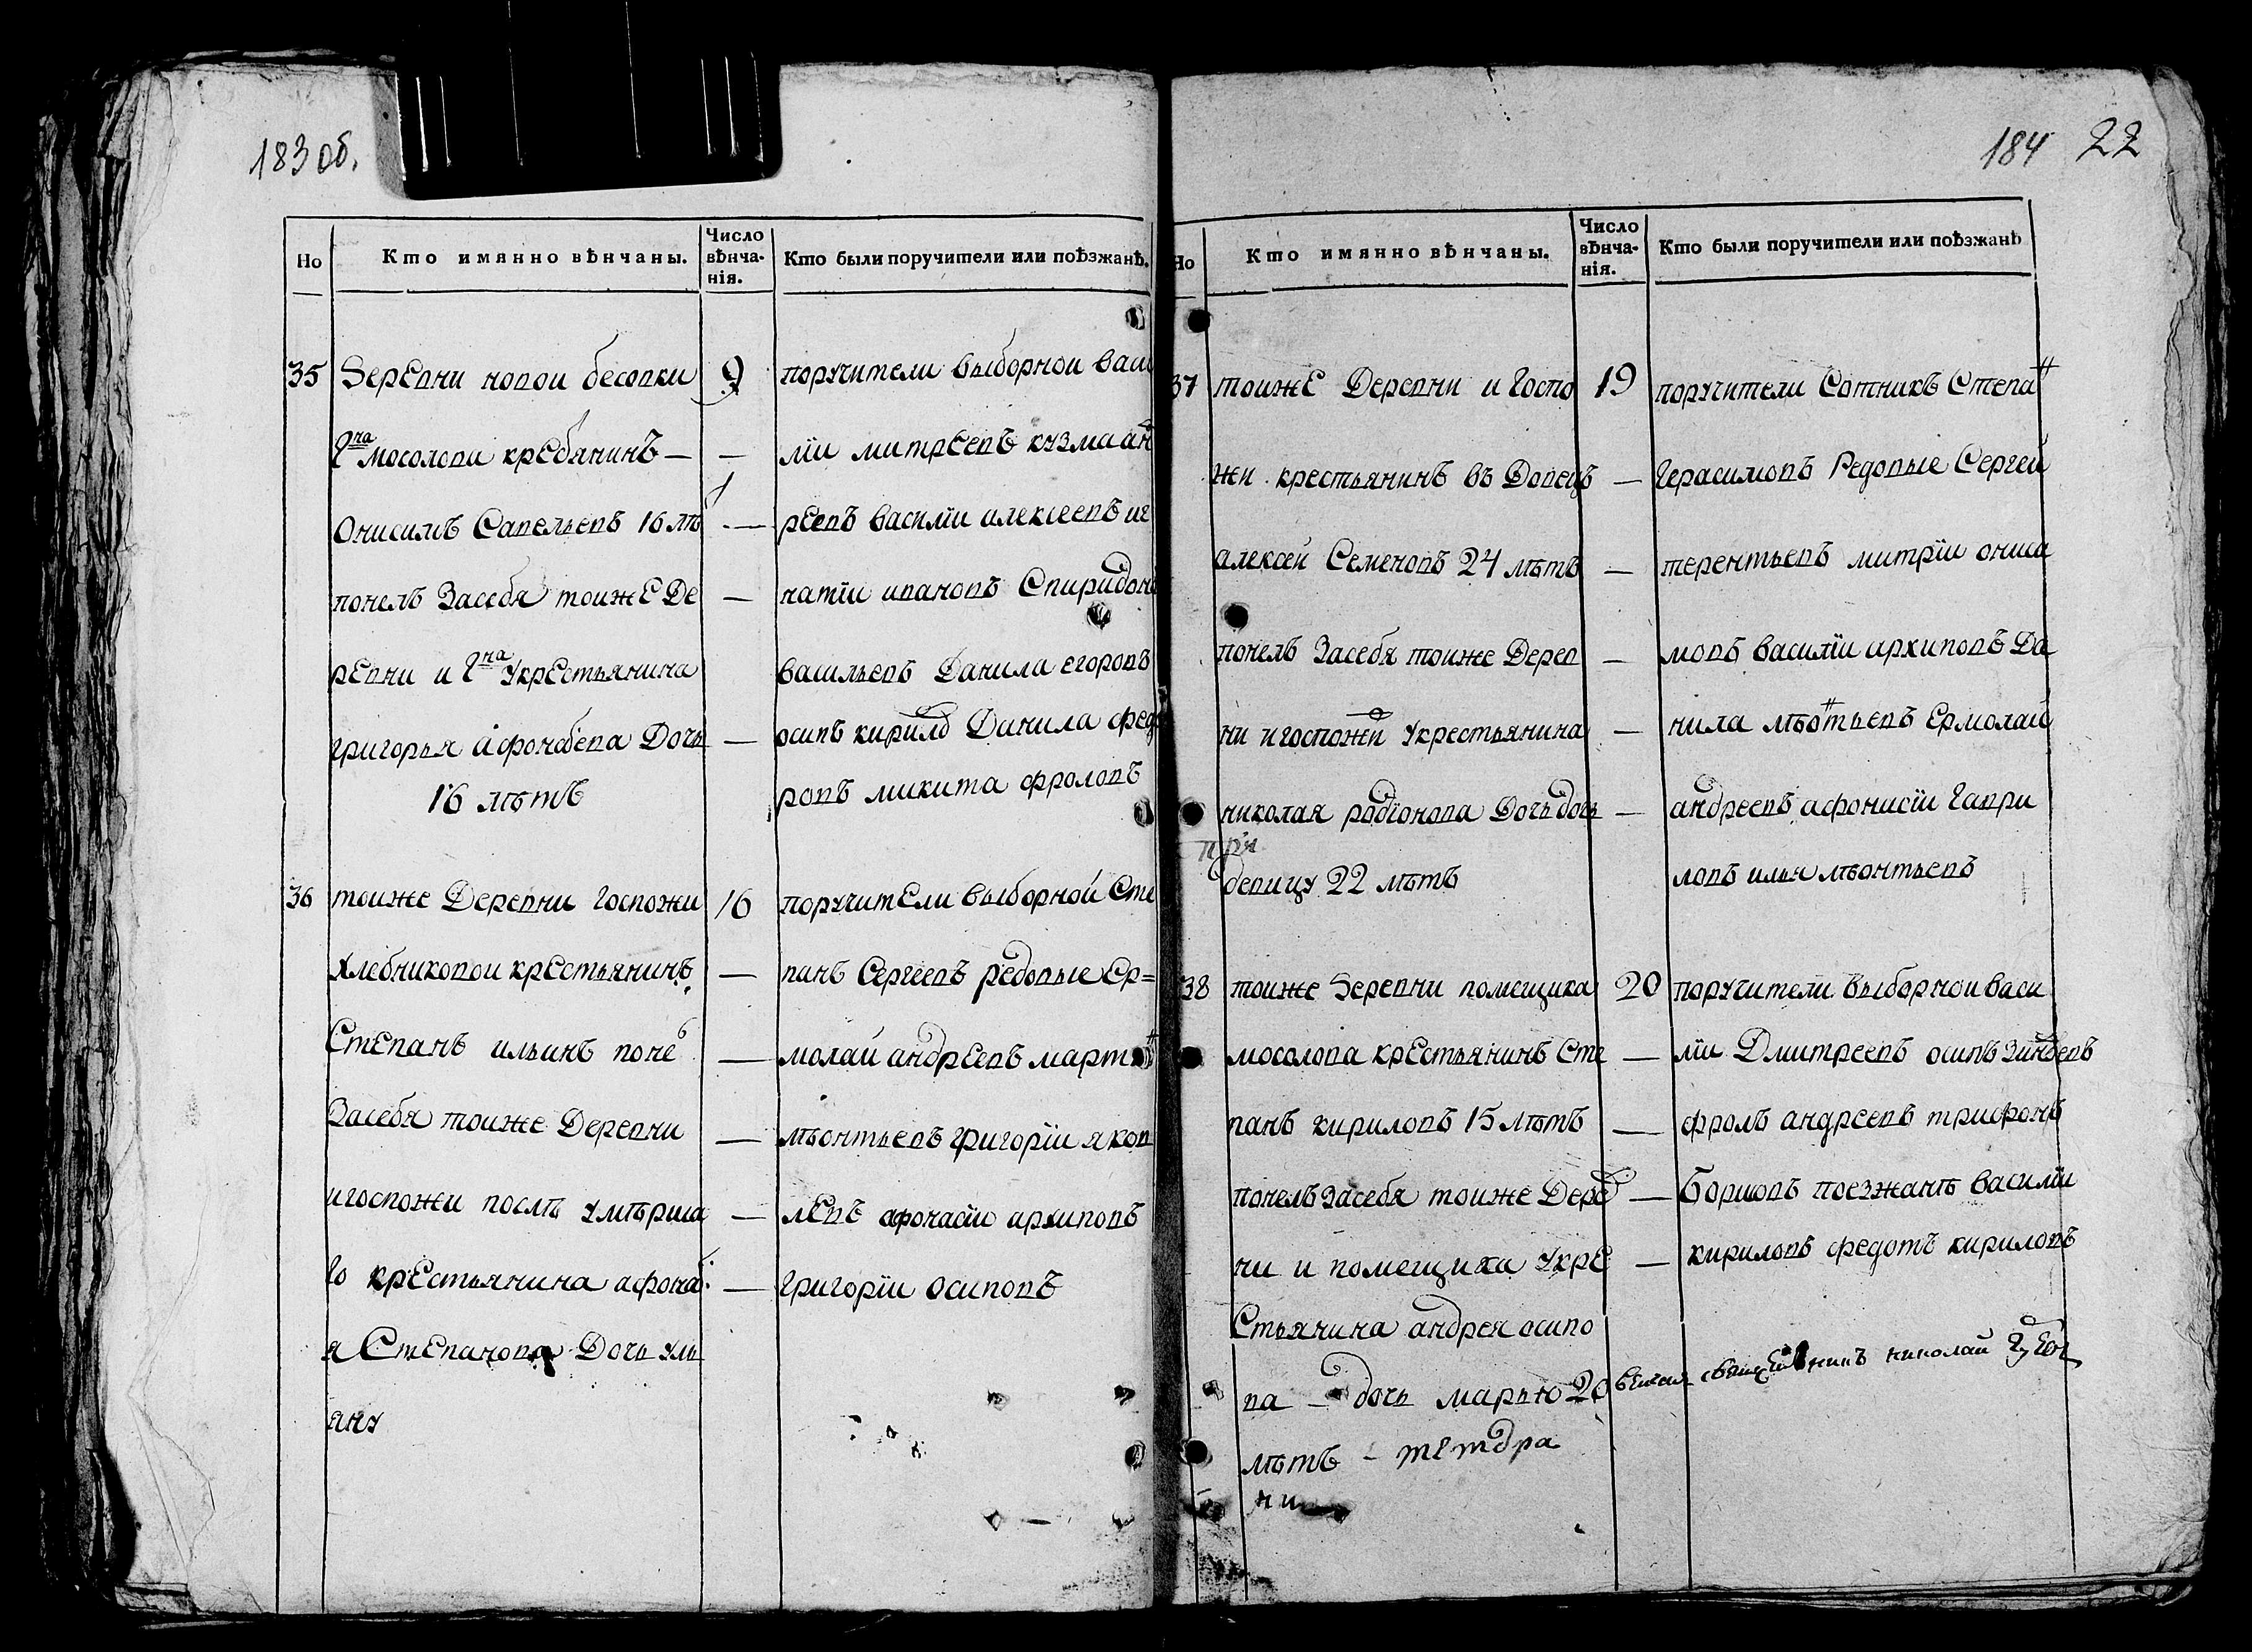 183 об.
Но
Кто имянно вѣнчаны.
Число вѣнча-нія.
Кто были поручители или поѣзжанѣ.
35 деревни новои бесовки 9
гна мосолова кребянинъ — —
Онисимъ Савельевъ 16 лѣ —
понелъ Засебя тоиже Де —
ревни и гна укрестьянина
григорья афонасева Дочь —
16 лѣтъ
поручители выборнои васи
лїи митреевъ кузма ан
реевъ василїи алексеевъ иг
натїи ивановъ Спиридонъ
васильевъ Данила егоровъ
осипъ кирилъ Данила федо
ровъ микита фроловъ
36 тоиже Деревни госпожи 16
Хлебниковои крестьянинъ —
Степанъ ильинъ поне —
Засебя тоиже Деревни —
игоспожи послѣ умѣрша —
го крестьянина афонас —
я Степанова Дочь уль
яну
поручители выборной Сте
панъ Сергеевъ редовые Ер=
молаи андреевъ мартынъ
лѣонтьевъ григорїи яков
левъ афонасїи архиповъ
григорїи осиповъ
184 22
Но
Кто имянно вѣнчаны.
Число вѣнча-нія.
Кто были поручители или поѣзжанѣ
37 тоиже Деревни и Госпо 19
жи крестьянинъ въ Довецъ —
алексеи Семеновъ 24 лѣтъ —
понелъ Засебя тоиже Дерев —
ни игоспожи укрестьянина —
николая родїонова Дочь дочь —
девицу 22 лѣтъ
поручители Сотникъ Степанъ
Герасимовъ Редовые Сергей
терентьевъ митрїи ониси
мовъ василїи архиповъ Да
нила лѣонтьевъ Ермолай
андреевъ афонисїи гаври
ловъ илья лѣонтьевъ
38 тоиже деревни помещика 20
мосолова крестьянинъ Сте —
панъ кириловъ 15 лѣтъ —
понелъ Засебя тоиже Дерев —
ни и помещика укре —
Стьянина андрея осипо
ва — дочь марью 20
лѣтъ –
поручители выборнои васи
лїи Дмитреевъ осипъ Зиновевъ
фролъ андреевъ трифонъ
Борисовъ поезжанѣ василїи
кириловъ федотъ кириловъ
николай